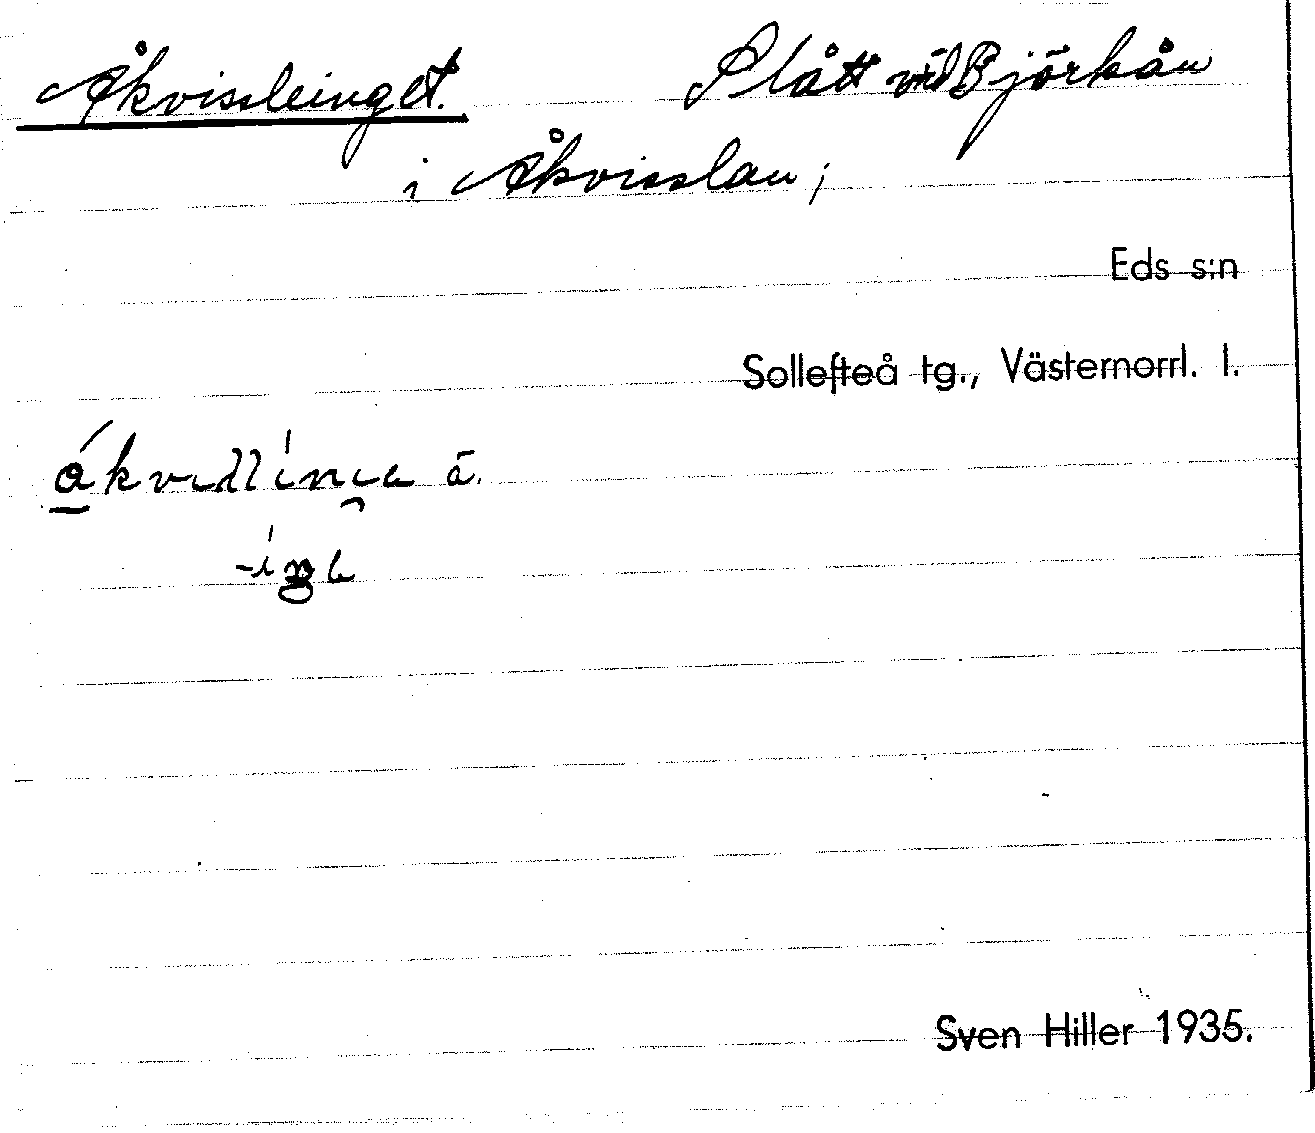 Åkvissleinget. Slått vid Björkån
i Åkvisslan;
Eds s:n
Sollefteå tg., Västernorrl. l.
Sven Hiller 1935.